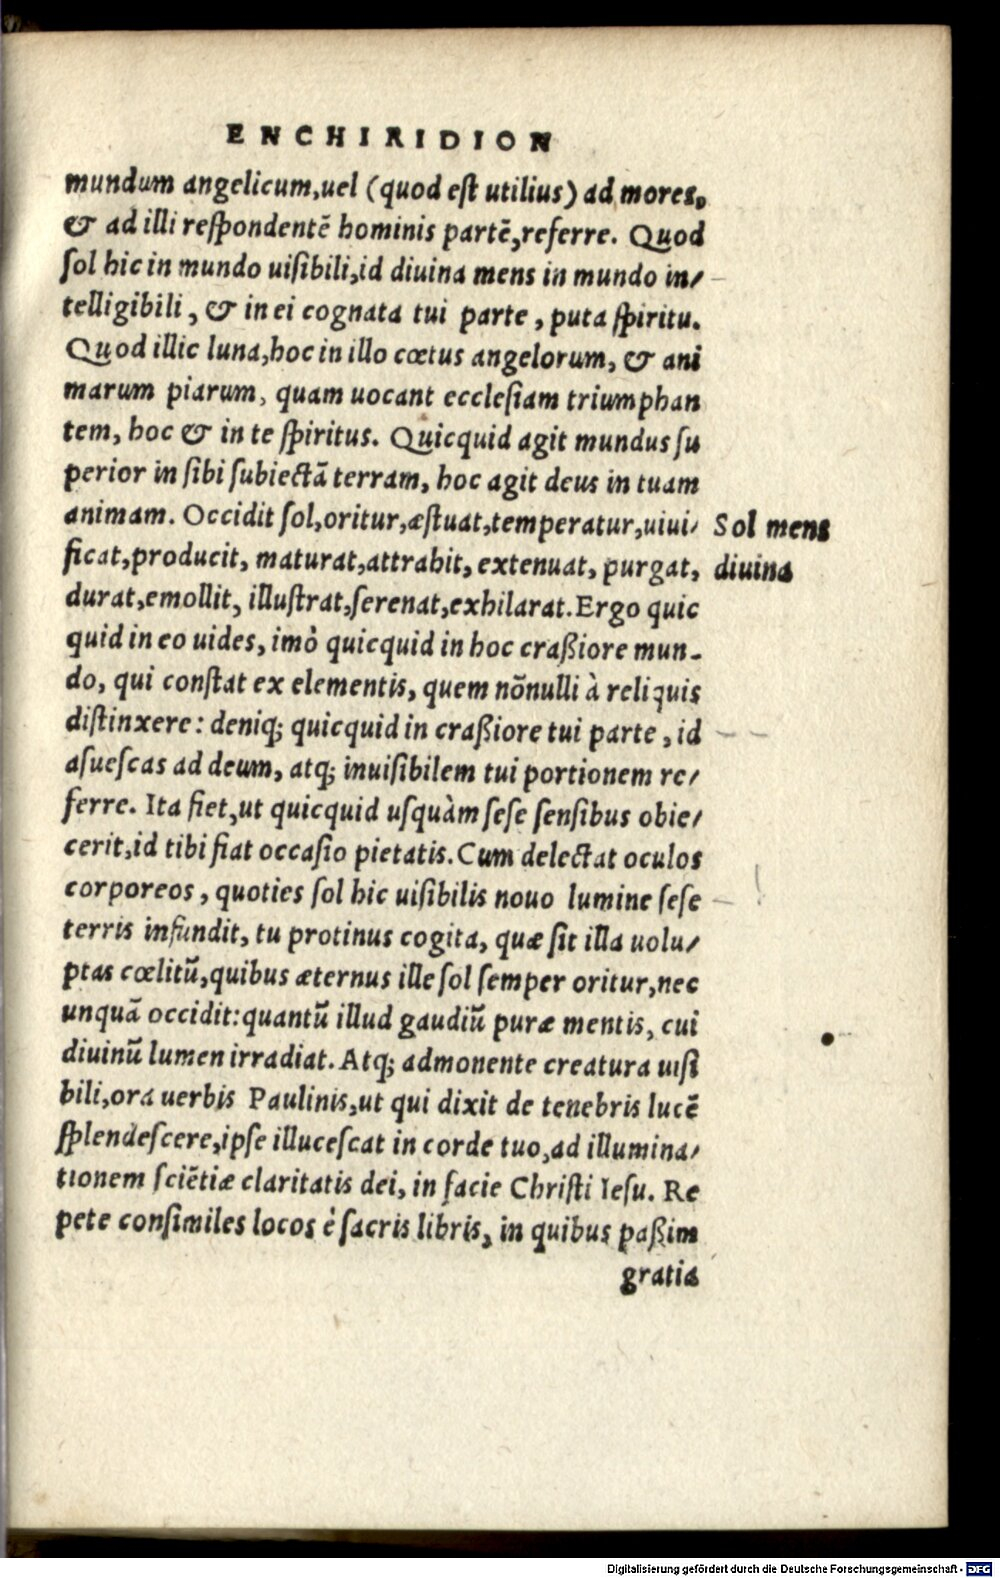 ENCHIRIDION
mundum angelicum,uel (quod est utilius) ad mores,
& ad illi respondentē hominis partē,referre. Quod
sol hic in mundo uisibili,id diuina mens in mundo in/
telligibili, & in ei cognata tui parte, puta spiritu.
Quod illic luna,hoc in illo cœtus angelorum, & ani
marum piarum, quam uocant ecclesiam triumphan
tem, hoc & in te spiritus. Quicquid agit mundus su
perior in sibi subiectā terram, hoc agit deus in tuam
animam. Occidit sol,oritur,æstuat,temperatur,uiui/
ficat,producit, maturat,attrahit, extenuat, purgat,
durat,emollit, illustrat,serenat,exhilarat. Ergo quic
quid in eo uides, imò quicquid in hoc craßiore mun-
do, qui constat ex elementis, quem nōnulli à reliquis
distinxere: deniq; quicquid in craßiore tui parte, id
asuescas ad deum, atq; inuisibilem tui portionem re/
ferre. Ita fiet,ut quicquid usquàm sese sensibus obie/
cerit,id tibi fiat occasio pietatis. Cum delectat oculos
corporeos, quoties sol hic uisibilis nouo lumine sese
terris infundit, tu protinus cogita, quæ sit illa uolu/
ptas cœlitū,quibus æternus ille sol semper oritur,nec
unquā occidit:quantū illud gaudiū puræ mentis, cui
diuinū lumen irradiat. Atq; admonente creatura uisi
bili,ora uerbis Paulinis,ut qui dixit de tenebris lucē
splendescere,ipse illucescat in corde tuo,ad illumina/
tionem sciētiæ claritatis dei, in facie Christi Iesu. Re
pete consimiles locos è sacris libris, in quibus paßim
gratia
Sol mens
diuina
Digitalisierung gefördert durch die Deutsche Forschungsgemeinschaft - DFG